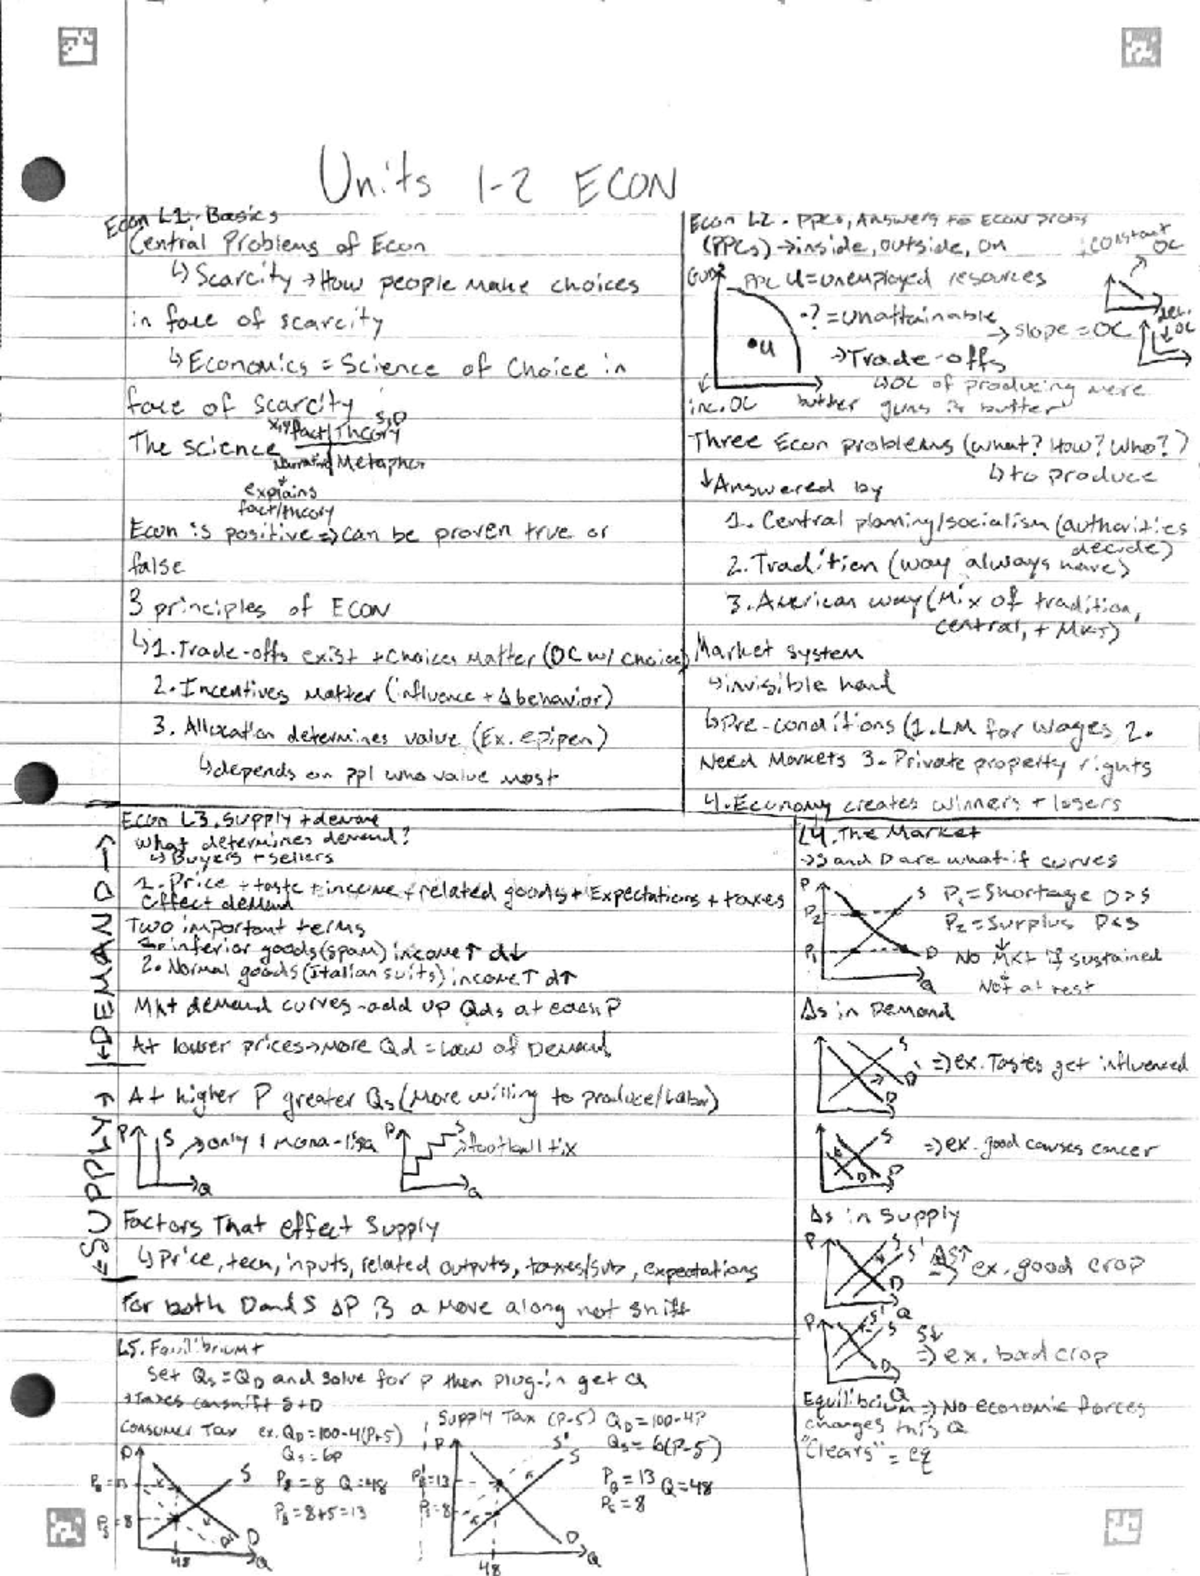 Units 1-2 ECON
Econ L1. Basics
Central Problems of Econ
↳Scarcity → How people make choices
in face of scarcity
↳Economics = Science of Choice in
face of scarcity
The science
x,y fact/Theory S,D
Narrative Metaphor
explains
fact/theory
Econ is positive => can be proven true or
false
3 principles of ECON
↳1. Trade-offs exist + Choices Matter (OC w/ choice)
2. Incentives Matter (influence + Δ behavior)
3. Allocation determines value (Ex. epipen)
↳depends on ppl who value most
Econ L2. PPCs, Answers to Econ probs
(PPCs) → inside, outside, on
constant
OC
Guns PPC U = unemployed resources
? = unattainable
→ slope = OC
dec.
OC
•U
→Trade-offs
↳OC of producing more
inc. OC butter guns is butter
Three Econ problems (What? How? Who?)
↳to produce
↓Answered by
1. Central planning/socialism (authorities
decide)
2. Tradition (way always have)
3. American way (Mix of tradition,
central, + MKT)
Market system
↳invisible hand
↳Pre-conditions (1. LM for wages 2.
Need Markets 3. Private property rights
4. Economy creates winners + losers
←DEMAND→
Econ L3. Supply + demand
What determines demand?
↳Buyers + sellers
1. Price + taste + income + related goods + Expectations + taxes
effect demand
Two important terms
inferior goods (spam) income↑ d↓
2. Normal goods (Italian suits) income↑ d↑
Mkt demand curves - add up Qds at each P
At lower prices → More Qd = Law of Demand
←SUPPLY→
At higher P greater Qs (More willing to produce/labor)
P S → only 1 mona-lisa P S → football tix
Q Q
Factors That effect Supply
↳Price, tech, inputs, related outputs, taxes/sub, expectations
For both D and S ΔP is a move along not shift
L4. The Market
→S and D are what-if curves
P S P₁ = Shortage D>S
P₂ P₂ = Surplus D<S
P₁ D No Mkt if sustained
Q Not at rest
Δs in Demand
S
D' => ex. Tastes get influenced
D
S
=> ex. good causes cancer
D' D
Δs in Supply
P S S' ΔS↑
=> ex. good crop
D
Q
P S' S S↓
=> ex. bad crop
D
Q
Equilibrium => No economic forces
changes this Q
"Clears" = eq
L5. Equilibrium +
Set Qs = QD and solve for P then plug-in get Q
→Taxes can shift S + D
Consumer Tax ex. QD = 100-4(P+5)
Qs = 6P
P S Ps = 8 Q = 48
PB = 13
Ps = 8 PB = 8+5 = 13
D' D
48 Q
Supply Tax (P-5) QD = 100-4P
P S' S Qs = 6(P-5)
PB = 13 PB = 13 Q = 48
Ps = 8 Ps = 8
D
48 Q